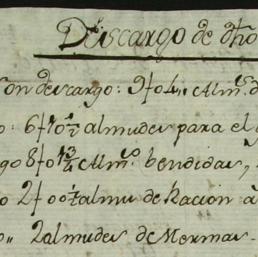 Descargo de dho
on descargo: 9fo 4,, Alms. d
o: 6fo 1½ almudes para el
go 8fo 1¾ Alms. bendidas,
o 2fo 0½ almu de Racion a
o,, 2 almudes de Mermas.